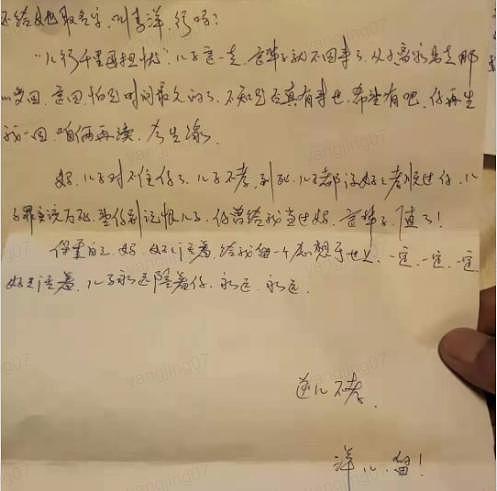 不给她取名字,叫李洋,行吗?
"儿行千里母担忧",儿子这一走,这辈子就不回来了,从小离家出走那
一次回,这回,怕是时间最久的了,不知是否真有来世,希望有吧,你再生
我一回,咱俩再续,今生缘
妈,儿子对不住你了,儿子不孝,到死,儿子都没好好孝顺过你,儿
子罪该万死,望你别记恨儿子,你曾给我当过妈,这辈子,值了!
保重自己,妈,好好活着,给我留一个念想于世上,一定,一定,一定
好好活着,儿子永远陪着你,永远,永远
逆儿不孝,
洋儿,留!
yangjing07